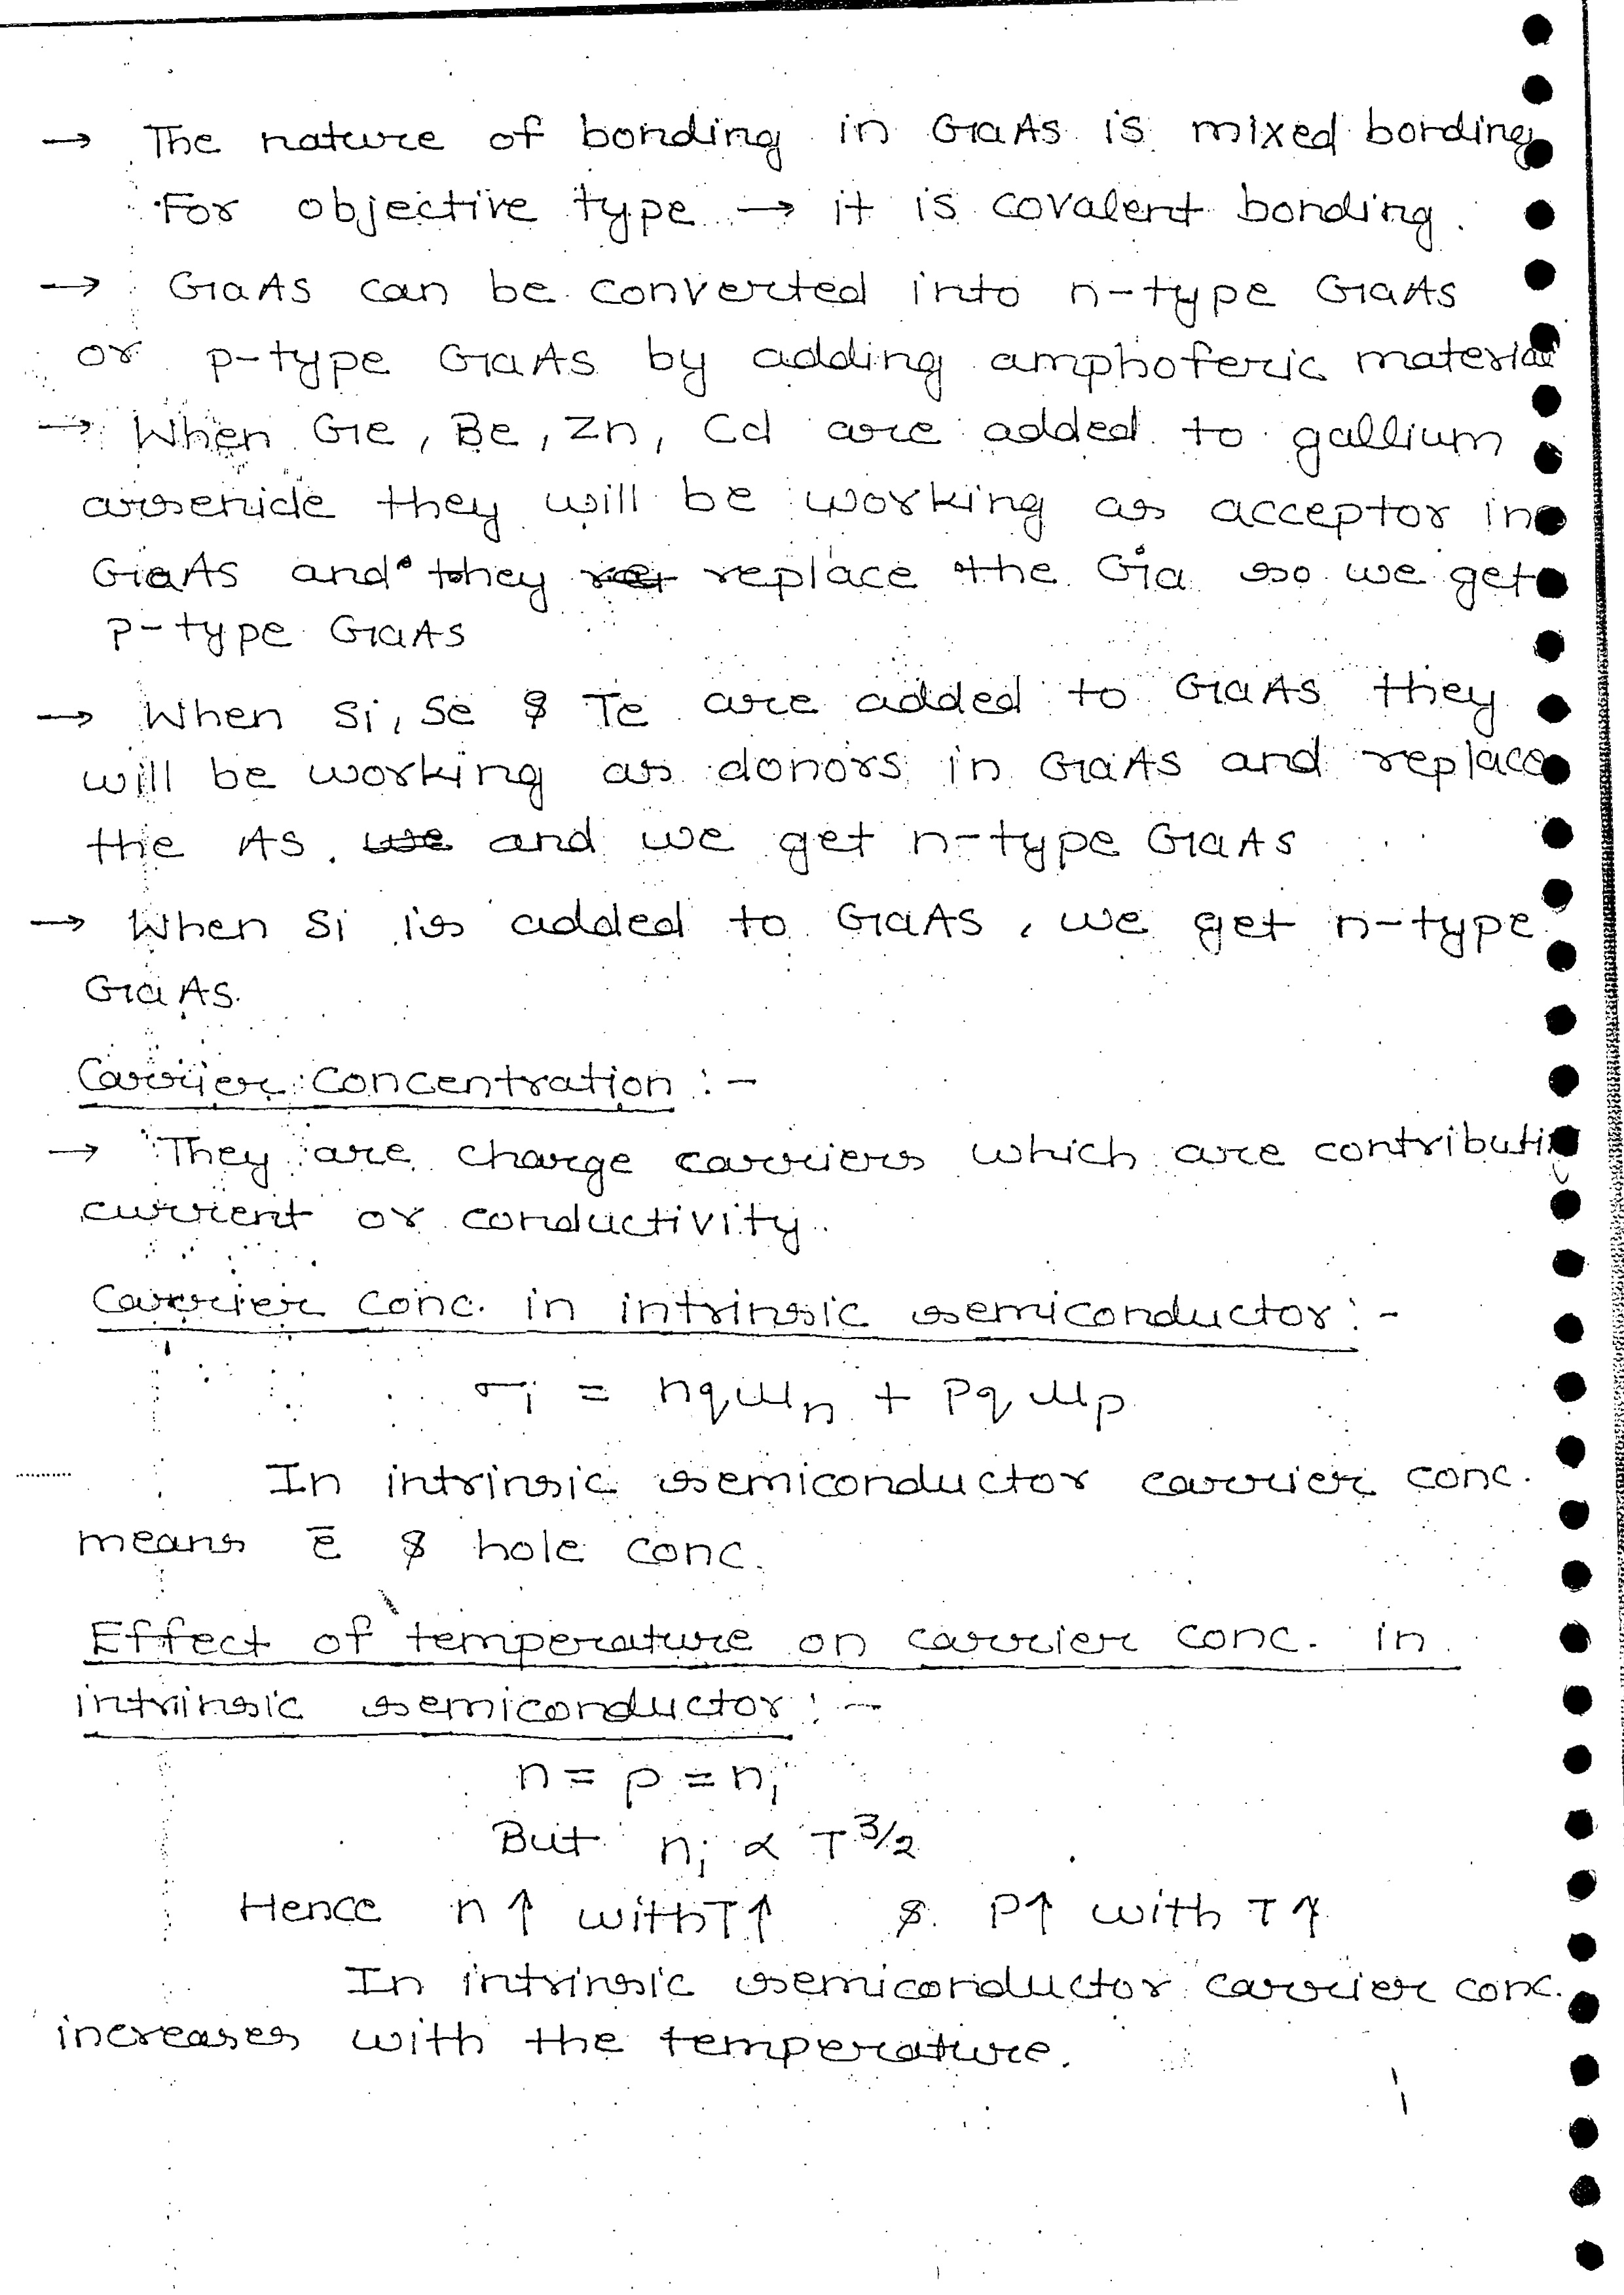 → The nature of bonding in GaAs is mixed bonding
For objective type → it is covalent bonding.
→ GaAs can be converted into n-type GaAs
or p-type GaAs by adding amphoteric material
→ When Ge, Be, Zn, Cd are added to gallium
arsenide they will be working as acceptor in
GaAs and they replace the Ga so we get
P-type GaAs
→ When Si, Se & Te are added to GaAs they
will be working as donors in GaAs and replace
the As. and we get n-type GaAs
→ When Si is added to GaAs, we get n-type
GaAs.
Carrier Concentration :-
→ They are charge carriers which are contributi
current or conductivity.
Carrier conc. in intrinsic semiconductor :-
σi = nqμn + Pqμp
In intrinsic semiconductor carrier conc.
means ē & hole conc.
Effect of temperature on carrier conc. in
intrinsic semiconductor :-
n = p = ni
But ni ∝ T^3/2
Hence n↑ with T↑ & P↑ with T↑
In intrinsic semiconductor carrier conc.
increases with the temperature.